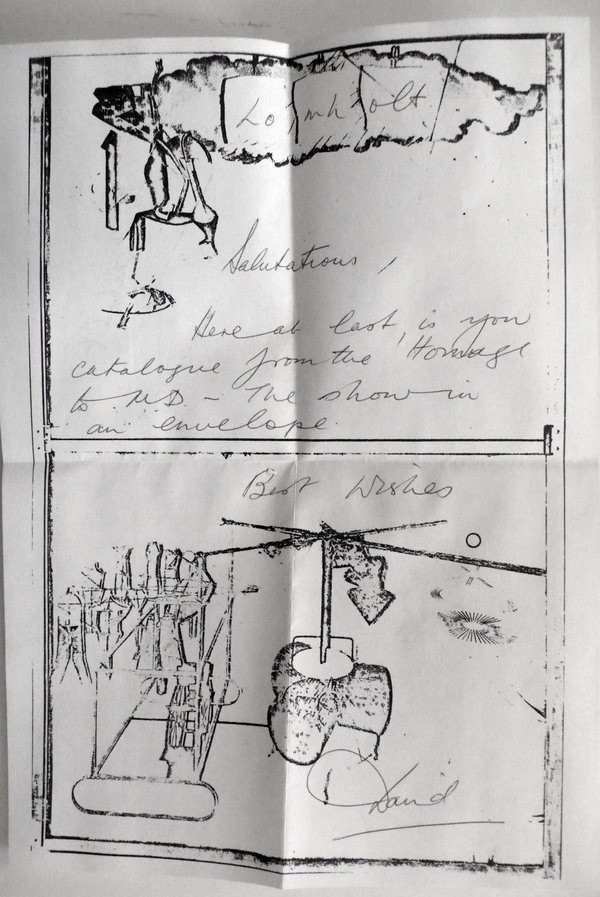 Salutations,
Here at last, is you
catalogue from the 'Homage
to MD - The show in
an envelope.
Best Wishes
David